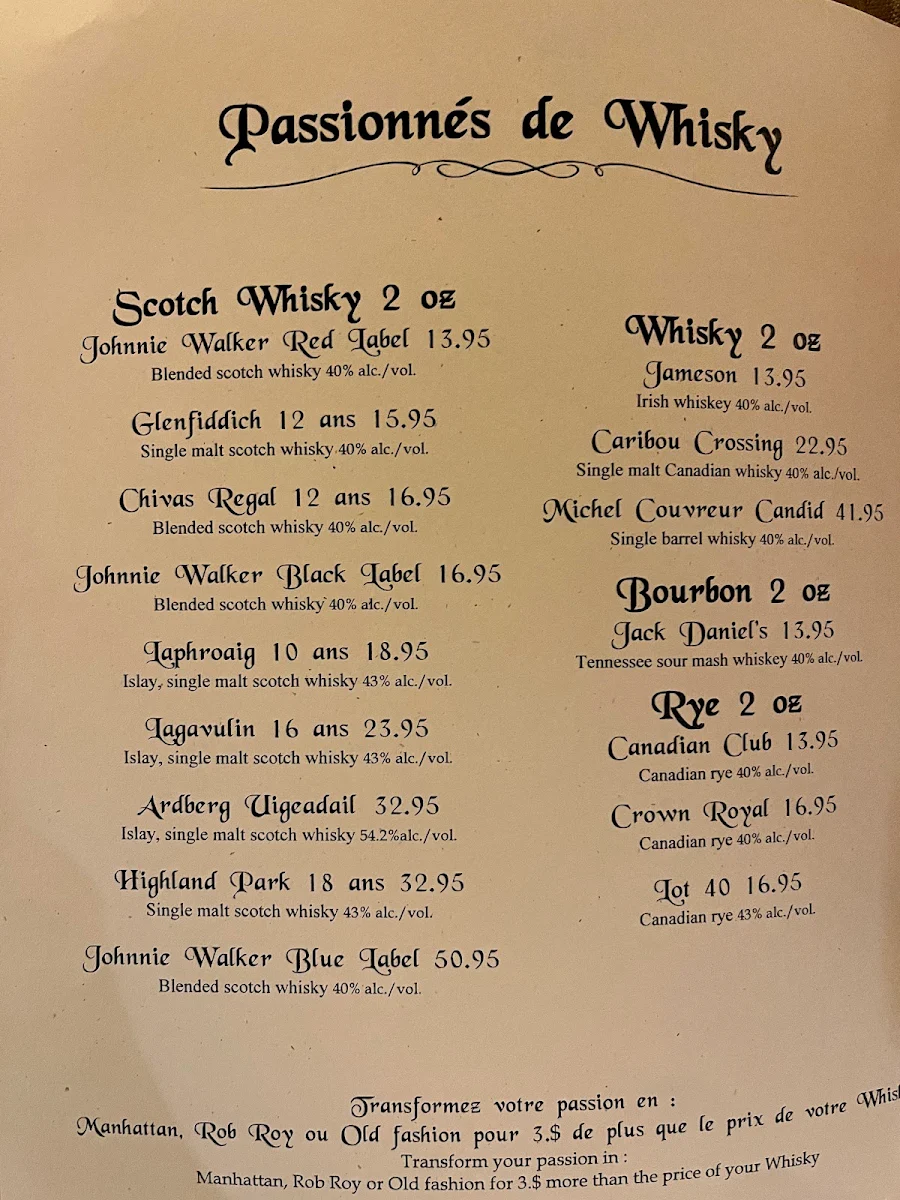 Passionnés de Whisky
Scotch Whisky 2 oz
Johnnie Walker Red Label 13.95
Blended scotch whisky 40% alc./vol.
Glenfiddich 12 ans 15.95
Single malt scotch whisky 40% alc./vol.
Chivas Regal 12 ans 16.95
Blended scotch whisky 40% alc./vol.
Johnnie Walker Black Label 16.95
Blended scotch whisky 40% alc./vol.
Laphroaig 10 ans 18.95
Islay, single malt scotch whisky 43% alc./vol.
Lagavulin 16 ans 23.95
Islay, single malt scotch whisky 43% alc./vol.
Ardberg Uigeadail 32.95
Islay, single malt scotch whisky 54.2%alc./vol.
Highland Park 18 ans 32.95
Single malt scotch whisky 43% alc./vol.
Johnnie Walker Blue Label 50.95
Blended scotch whisky 40% alc./vol.
Whisky 2 oz
Jameson 13.95
Irish whiskey 40% alc./vol.
Caribou Crossing 22.95
Single malt Canadian whisky 40% alc./vol.
Michel Couvreur Candid 41.95
Single barrel whisky 40% alc./vol.
Bourbon 2 oz
Jack Daniel's 13.95
Tennessee sour mash whiskey 40% alc./vol.
Rye 2 oz
Canadian Club 13.95
Canadian rye 40% alc./vol.
Crown Royal 16.95
Canadian rye 40% alc./vol.
Lot 40 16.95
Canadian rye 43% alc./vol.
Transformez votre passion en :
Manhattan, Rob Roy ou Old fashion pour 3.$ de plus que le prix de votre
Transform your passion in :
Manhattan, Rob Roy or Old fashion for 3.$ more than the price of your Whisky